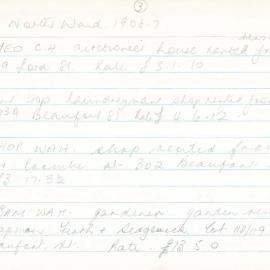 3
North Ward 1906-7
YEO C.H auctioneer house rented fro
9 Lord St. Rate £3-1-10
Yop laundryman shop rented from
Beaufort St Rate £4-6-12
HOP WAH. shop rented from
Coombe at 302 Beaufort
£3 17.32
WAH. gardener garden
Chapman Leith & Sedgewick Lot 118/119
Beaufort St. Rate £13 5 0